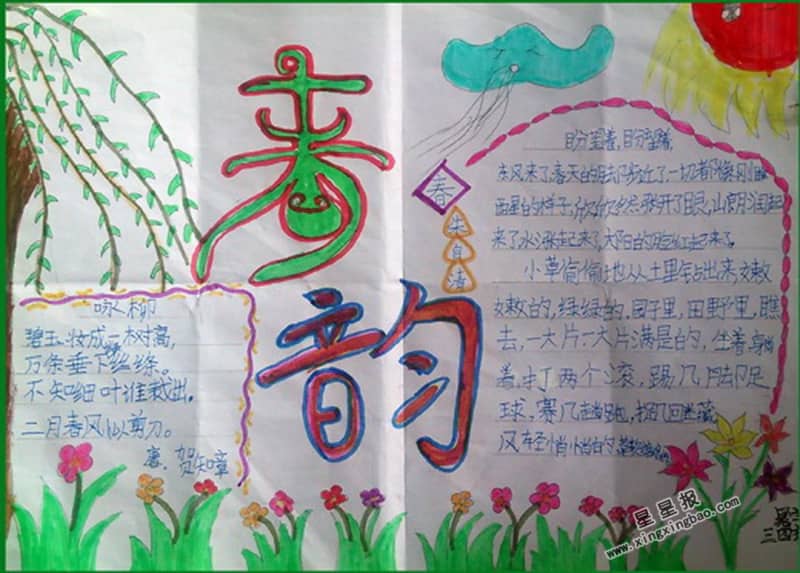 春韵
咏柳
碧玉妆成一树高,
万条垂下丝绦。
不知细叶谁裁出。
二月春风似剪刀。
唐、贺知章
春
朱自清
盼望着,盼望着,
东风来了,春天的脚步近了一切都像刚
的样子,欣欣然张开了眼,山朗润起
来了水涨起来了,太阳的脸红起来了。
小草偷偷地从土里钻出来嫩
嫩的,绿绿的,园子里,田野里,瞧
去,一大片一大片满是的,坐着,
着,打两个滚,踢几脚足
球,赛几趟跑,捉几回迷藏
风轻悄悄的
星星报
www.xingxingbao.com